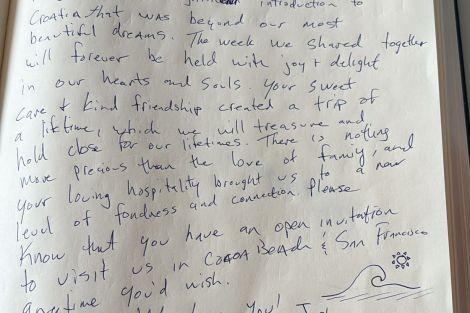 introduction to
Croatia that was beyond our most
beautiful dreams. The week we shared together
will forever be held with joy + delight
in our hearts and souls. Your sweet
care & kind friendship created a trip of
a lifetime, which we will treasure and
hold close for our lifetimes. There is nothing
more precious than the love of family, and
your loving hospitality brought us to a new
level of fondness and connection. Please
Know that you have an open invitation
to visit us in COCOA BEACH & SAN FRANCISCO
anytime you'd wish.
you!